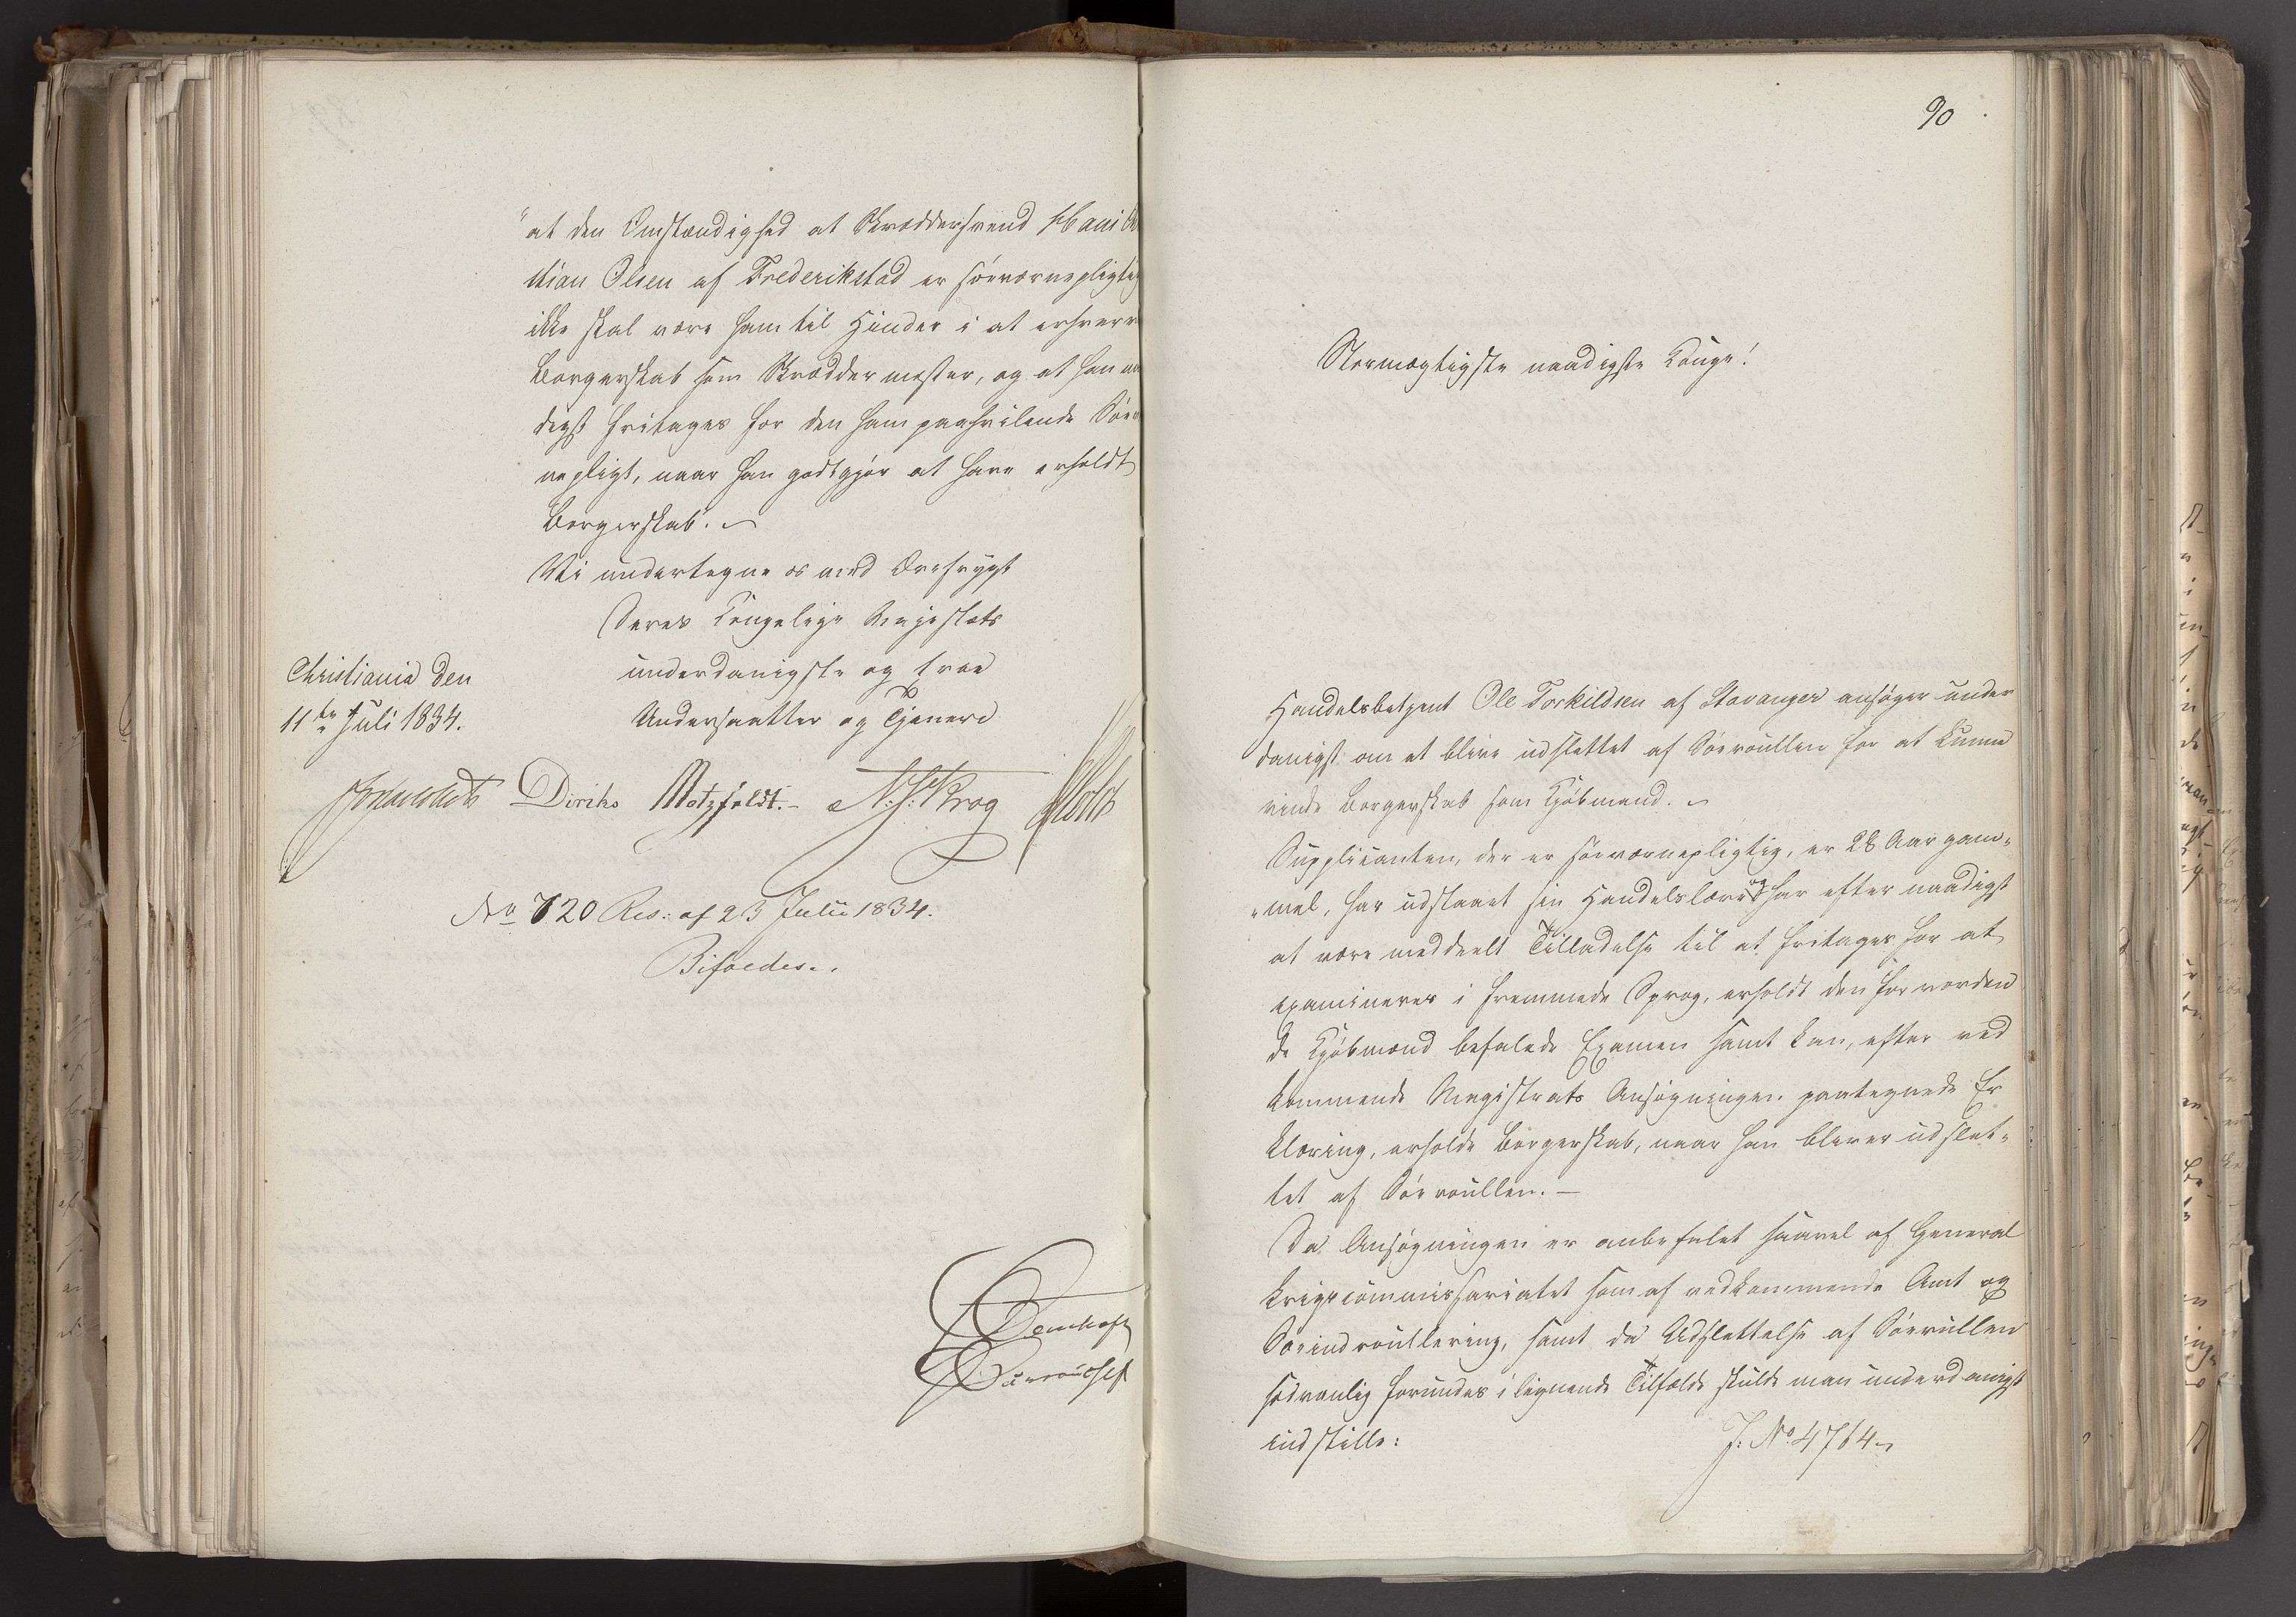 "at den Omstændighed at Skræddersvend Hans
stian Olsen af Frederikstad er søeværnepligtig
ikke skal være ham til Hinder i at erhverve
Borgerskab som Skræddermester, og at han
digst fritages for den ham paahvilende Søe
nepligt, naar han godtgjør at have erholdt
Borgerskab".
Vi undertegne os med Ærefrygt
Deres Kongelige Majestæts
underdanigste og troe
Undersaatter og Tjenere
Christiania den
11te Juli 1834.
Diriks Motzfeldt. N. J. Krog Holst
No 720 Res: af 23 Julii 1834.
Bifaldes.
90
Stormægtigste naadigste Konge!
Handelsbetjent Ole Torkildsen af Stavanger ansøger under
danigst om at blive udslettet af Søeroullen for at kunne
vinde Borgerskab som Kjøbmand.
Supplicanten, der er søeværnepligtig, er 28 Aar gam-
mel, har udstaaet sin Handelslære og har efter naadigst
at være meddeelt Tilladelse til at fritages for at
examineres i fremmede Sprog, erholdt den for vorden
de Kjøbmænd befalede Examen samt kan, efter ved
kommende Magistrats Ansøgningen paategnede Er
klæring, erholde Borgerskab, naar han bliver udslet-
tet af Søeroullen. —
Da Ansøgningen er anbefalet saavel af General
Krigscommissariatet som af vedkommende Amt og
Søeindroullering, samt da Udslettelse af Søerullen
sædvanlig forundes i lignende Tilfælde skulde man underdanigst
indstille:
J: No 4764